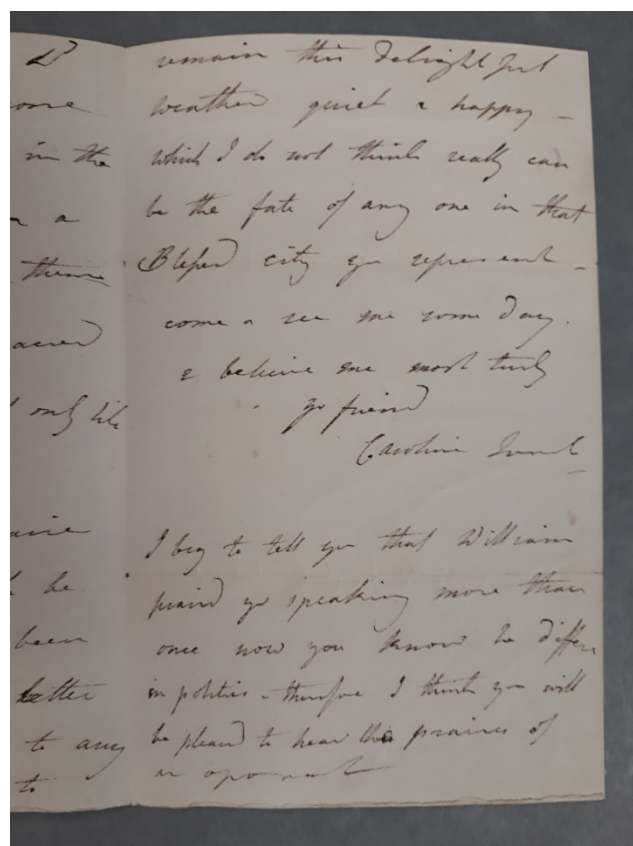 D
one
in the
a
them
acred
only like
be
been
better
to any
to
remain this delightful
weather quiet & happy –
which I do not think really can
be the fate of any one in that
Blessed city yr represent –
come & see me some day.
& believe me most truly
yr friend
Caroline Lamb
I beg to tell you that William
praisd yr speaking more than
once now you know he differs
in politics – therefore I think you will
be pleasd to hear the praises of
an oponent